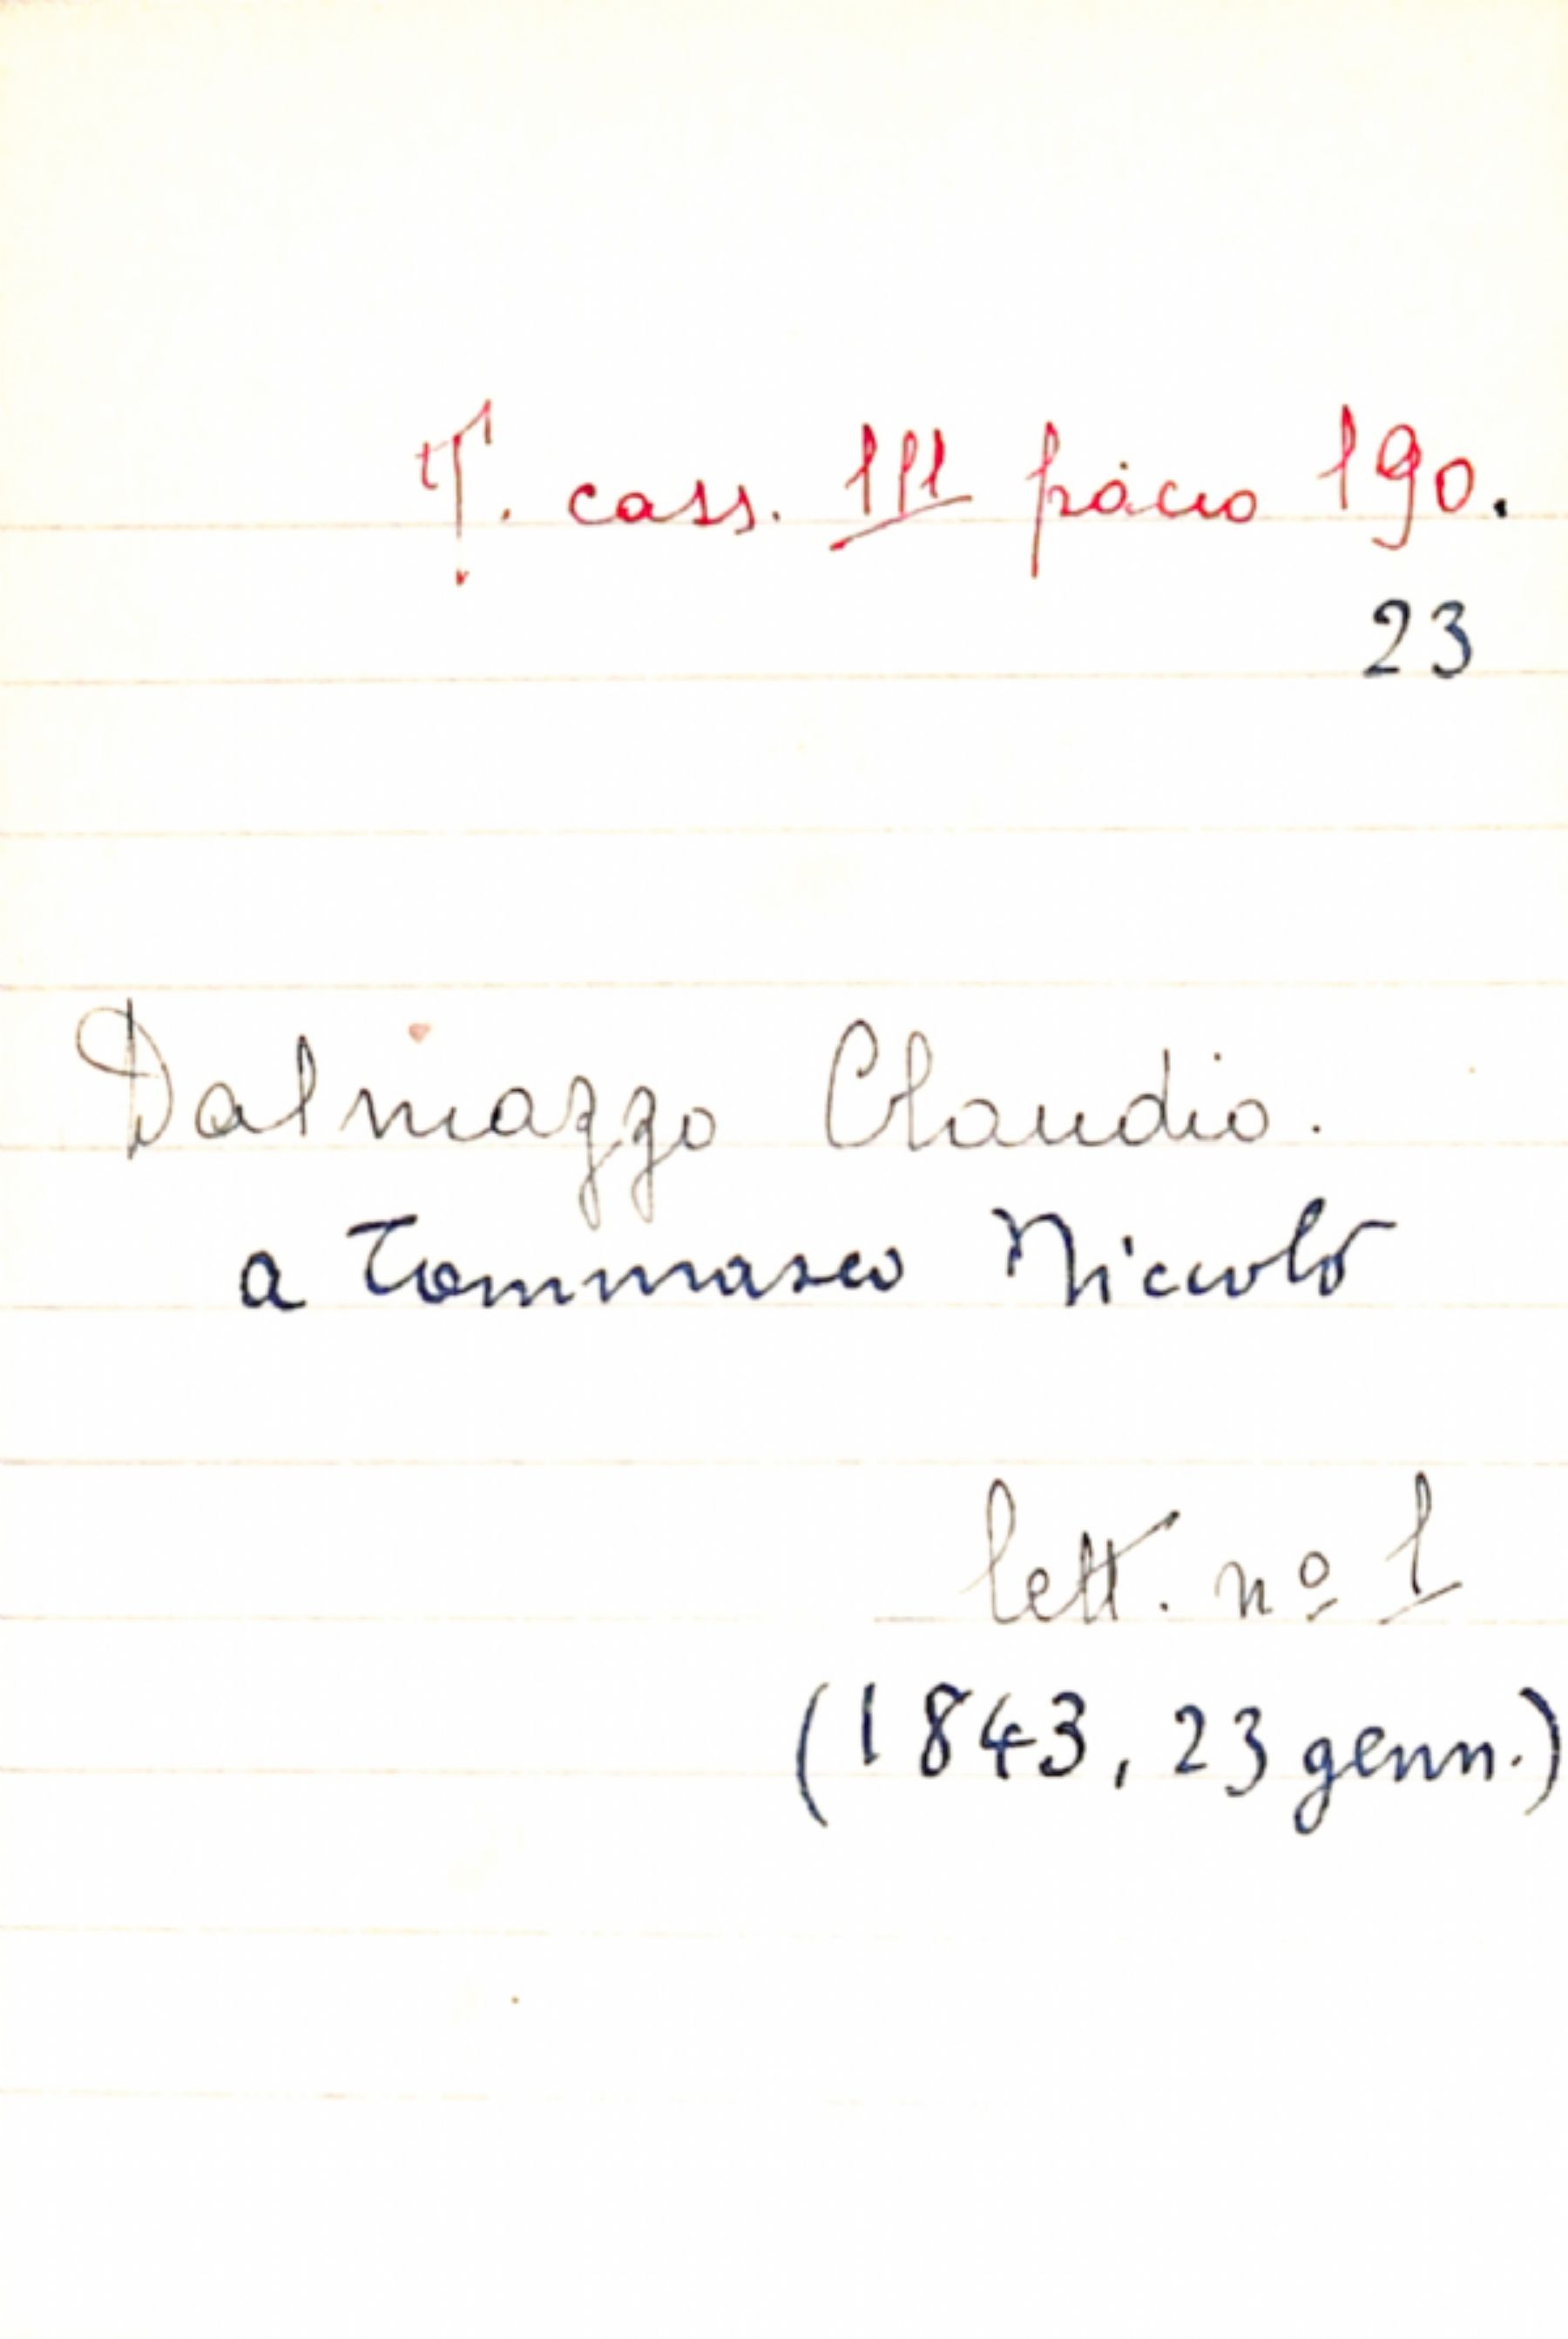 T. cass. III pacco 190.
23
Dalmazzo Claudio.
a Tommaseo Niccolò
lett. nº 1
(1843, 23 genn.)